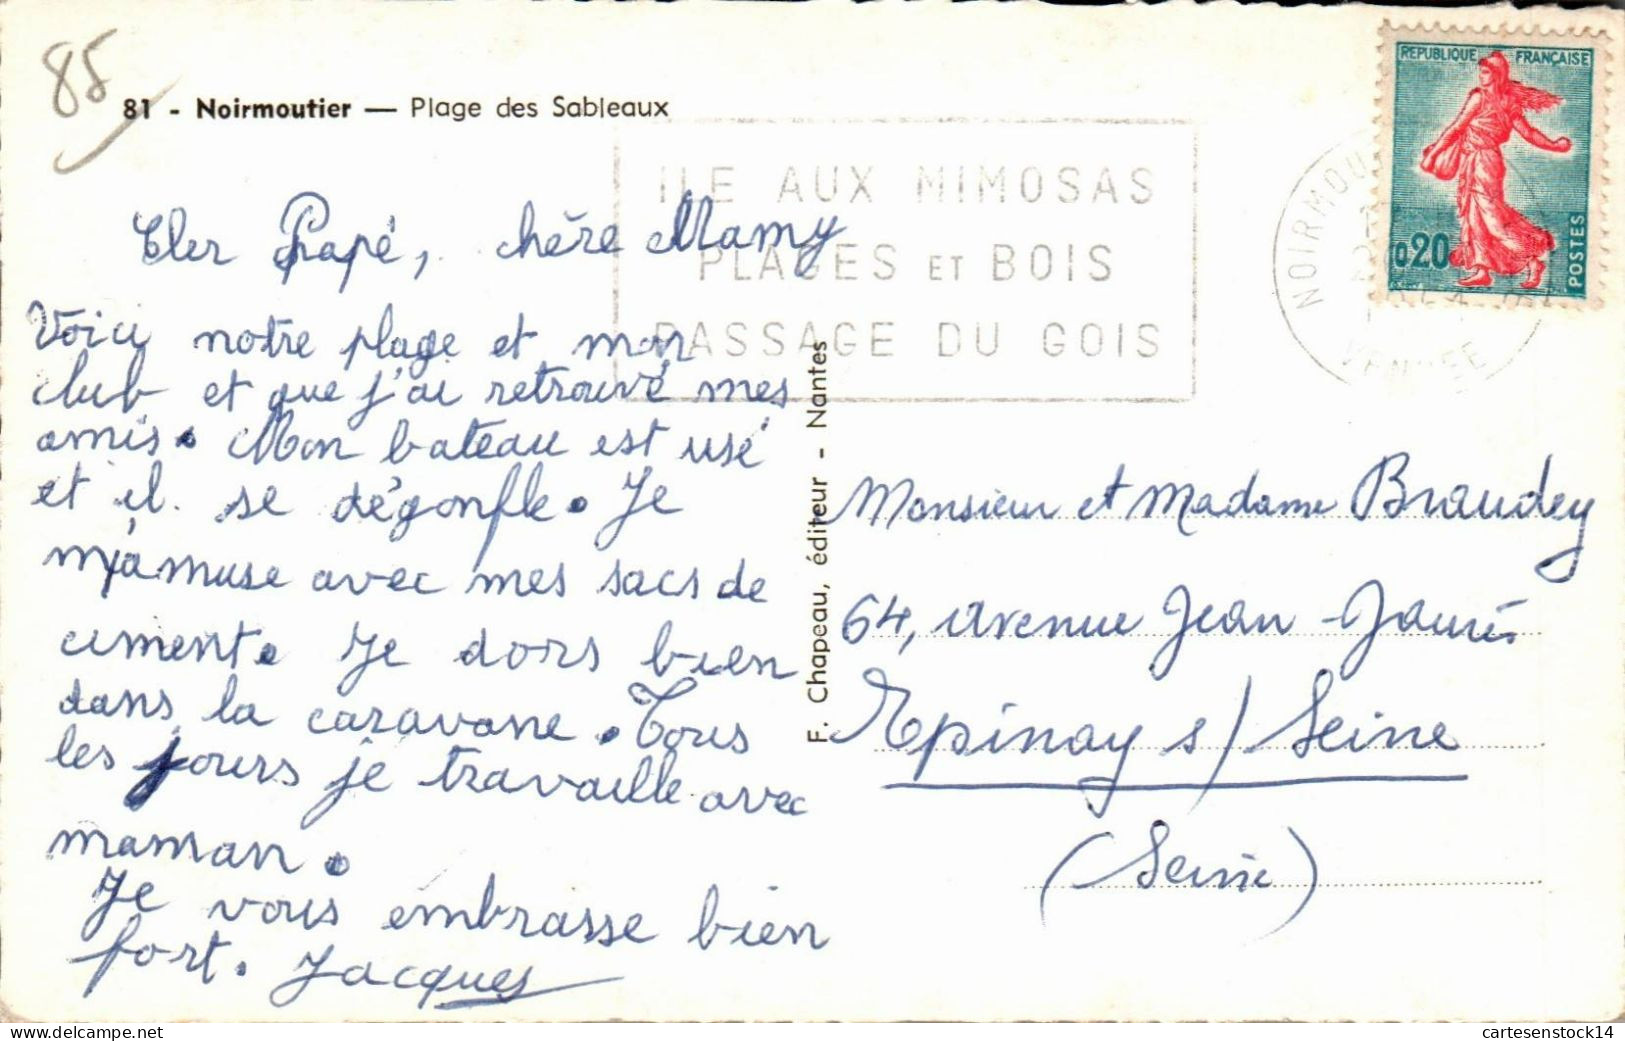 85
81 - Noirmoutier — Plage des Sableaux
REPUBLIQUE FRANÇAISE
0,20
POSTES
ILE AUX MIMOSAS
PLAGES ET BOIS
PASSAGE DU GOIS
NOIRMOU
VENDEE
Cher Papé, chère Mamy
Voici notre plage et mon
club et que j'ai retrouvé mes
amis. Mon bateau est usé
et il se dégonfle. Je
m'amuse avec mes sacs de
ciment. Je dors bien
dans la caravane. Tous
les jours je travaille avec
maman.
Je vous embrasse bien
fort. Jacques
F. Chapeau, éditeur - Nantes
Monsieur et Madame Braudey
64, avenue Jean-Jaurès
Epinay s/ Seine
(Seine)
cartesenstock14